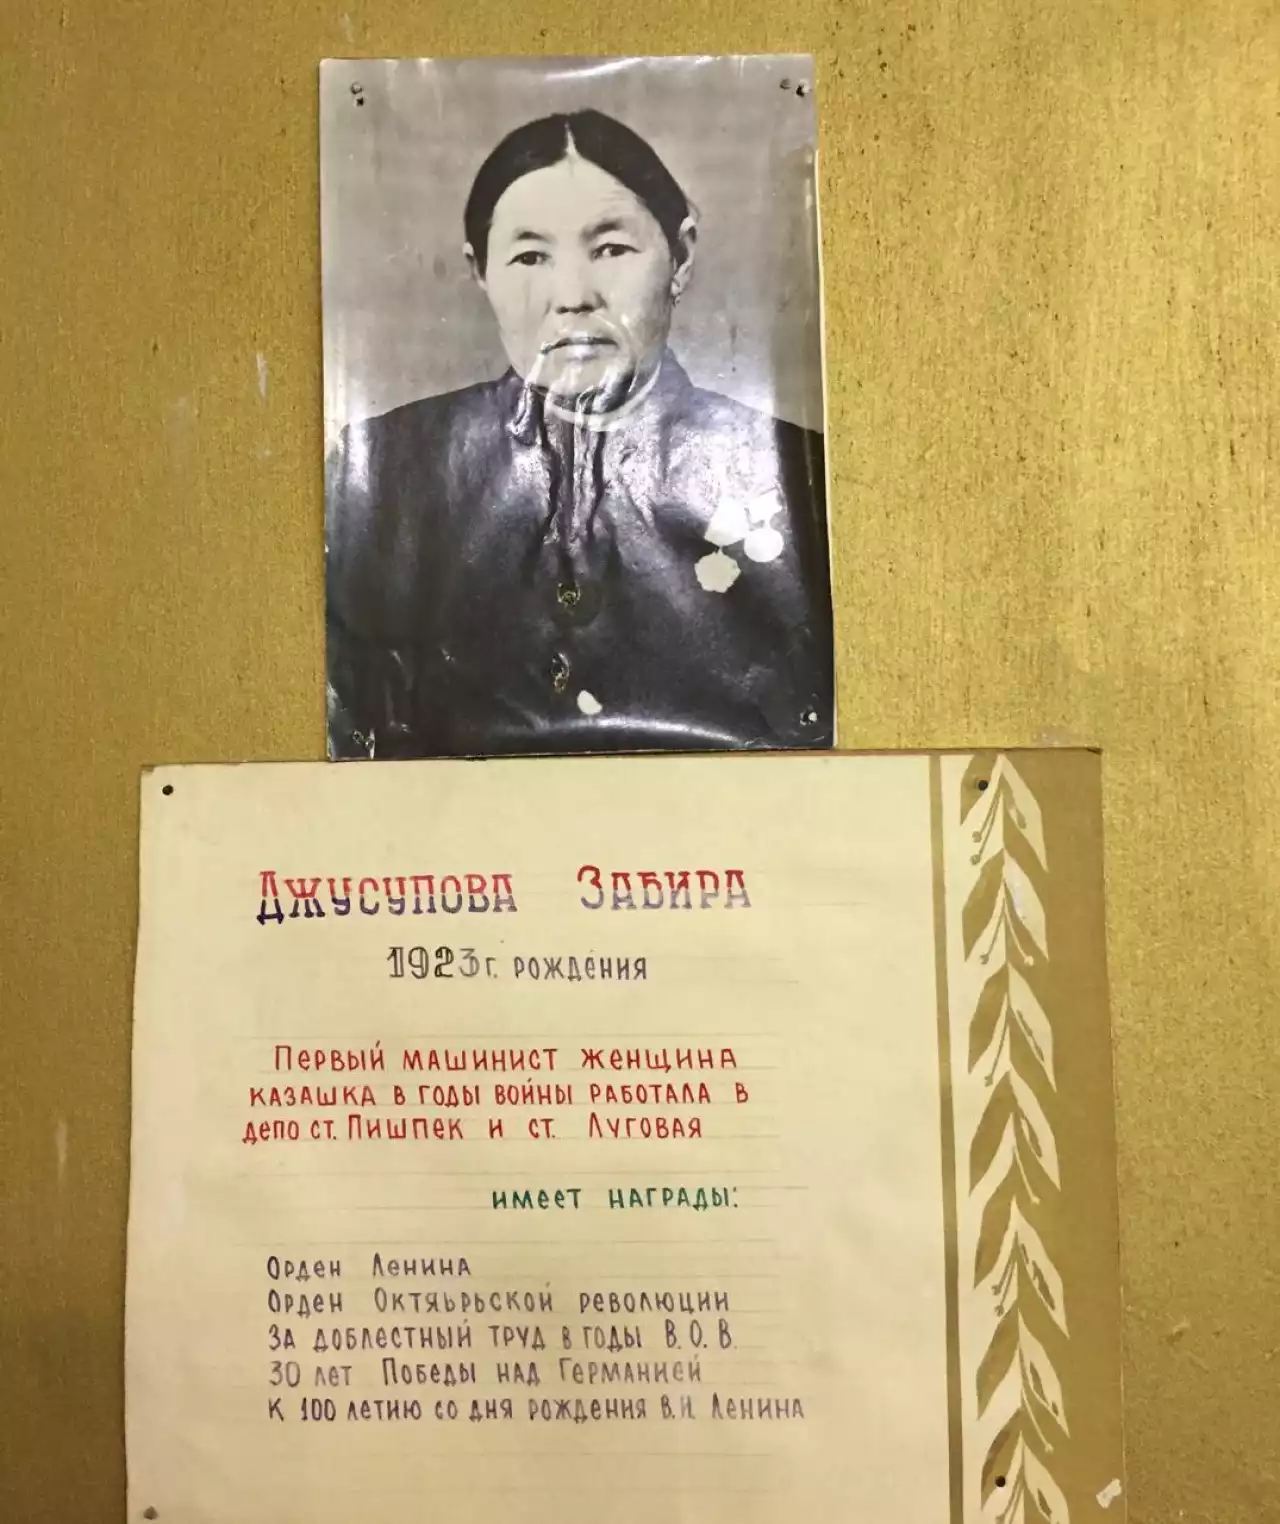 Джусупова Забира
1923 г. рождения
Первый машинист женщина
казашка в годы войны работала в
депо ст. Пишпек и ст. Луговая
имеет награды:
Орден Ленина
Орден Октяьрьской революции
За доблестный труд в годы В.О.В.
30 лет Победы над Германией
К 100 летию со дня рождения В.И. Ленина